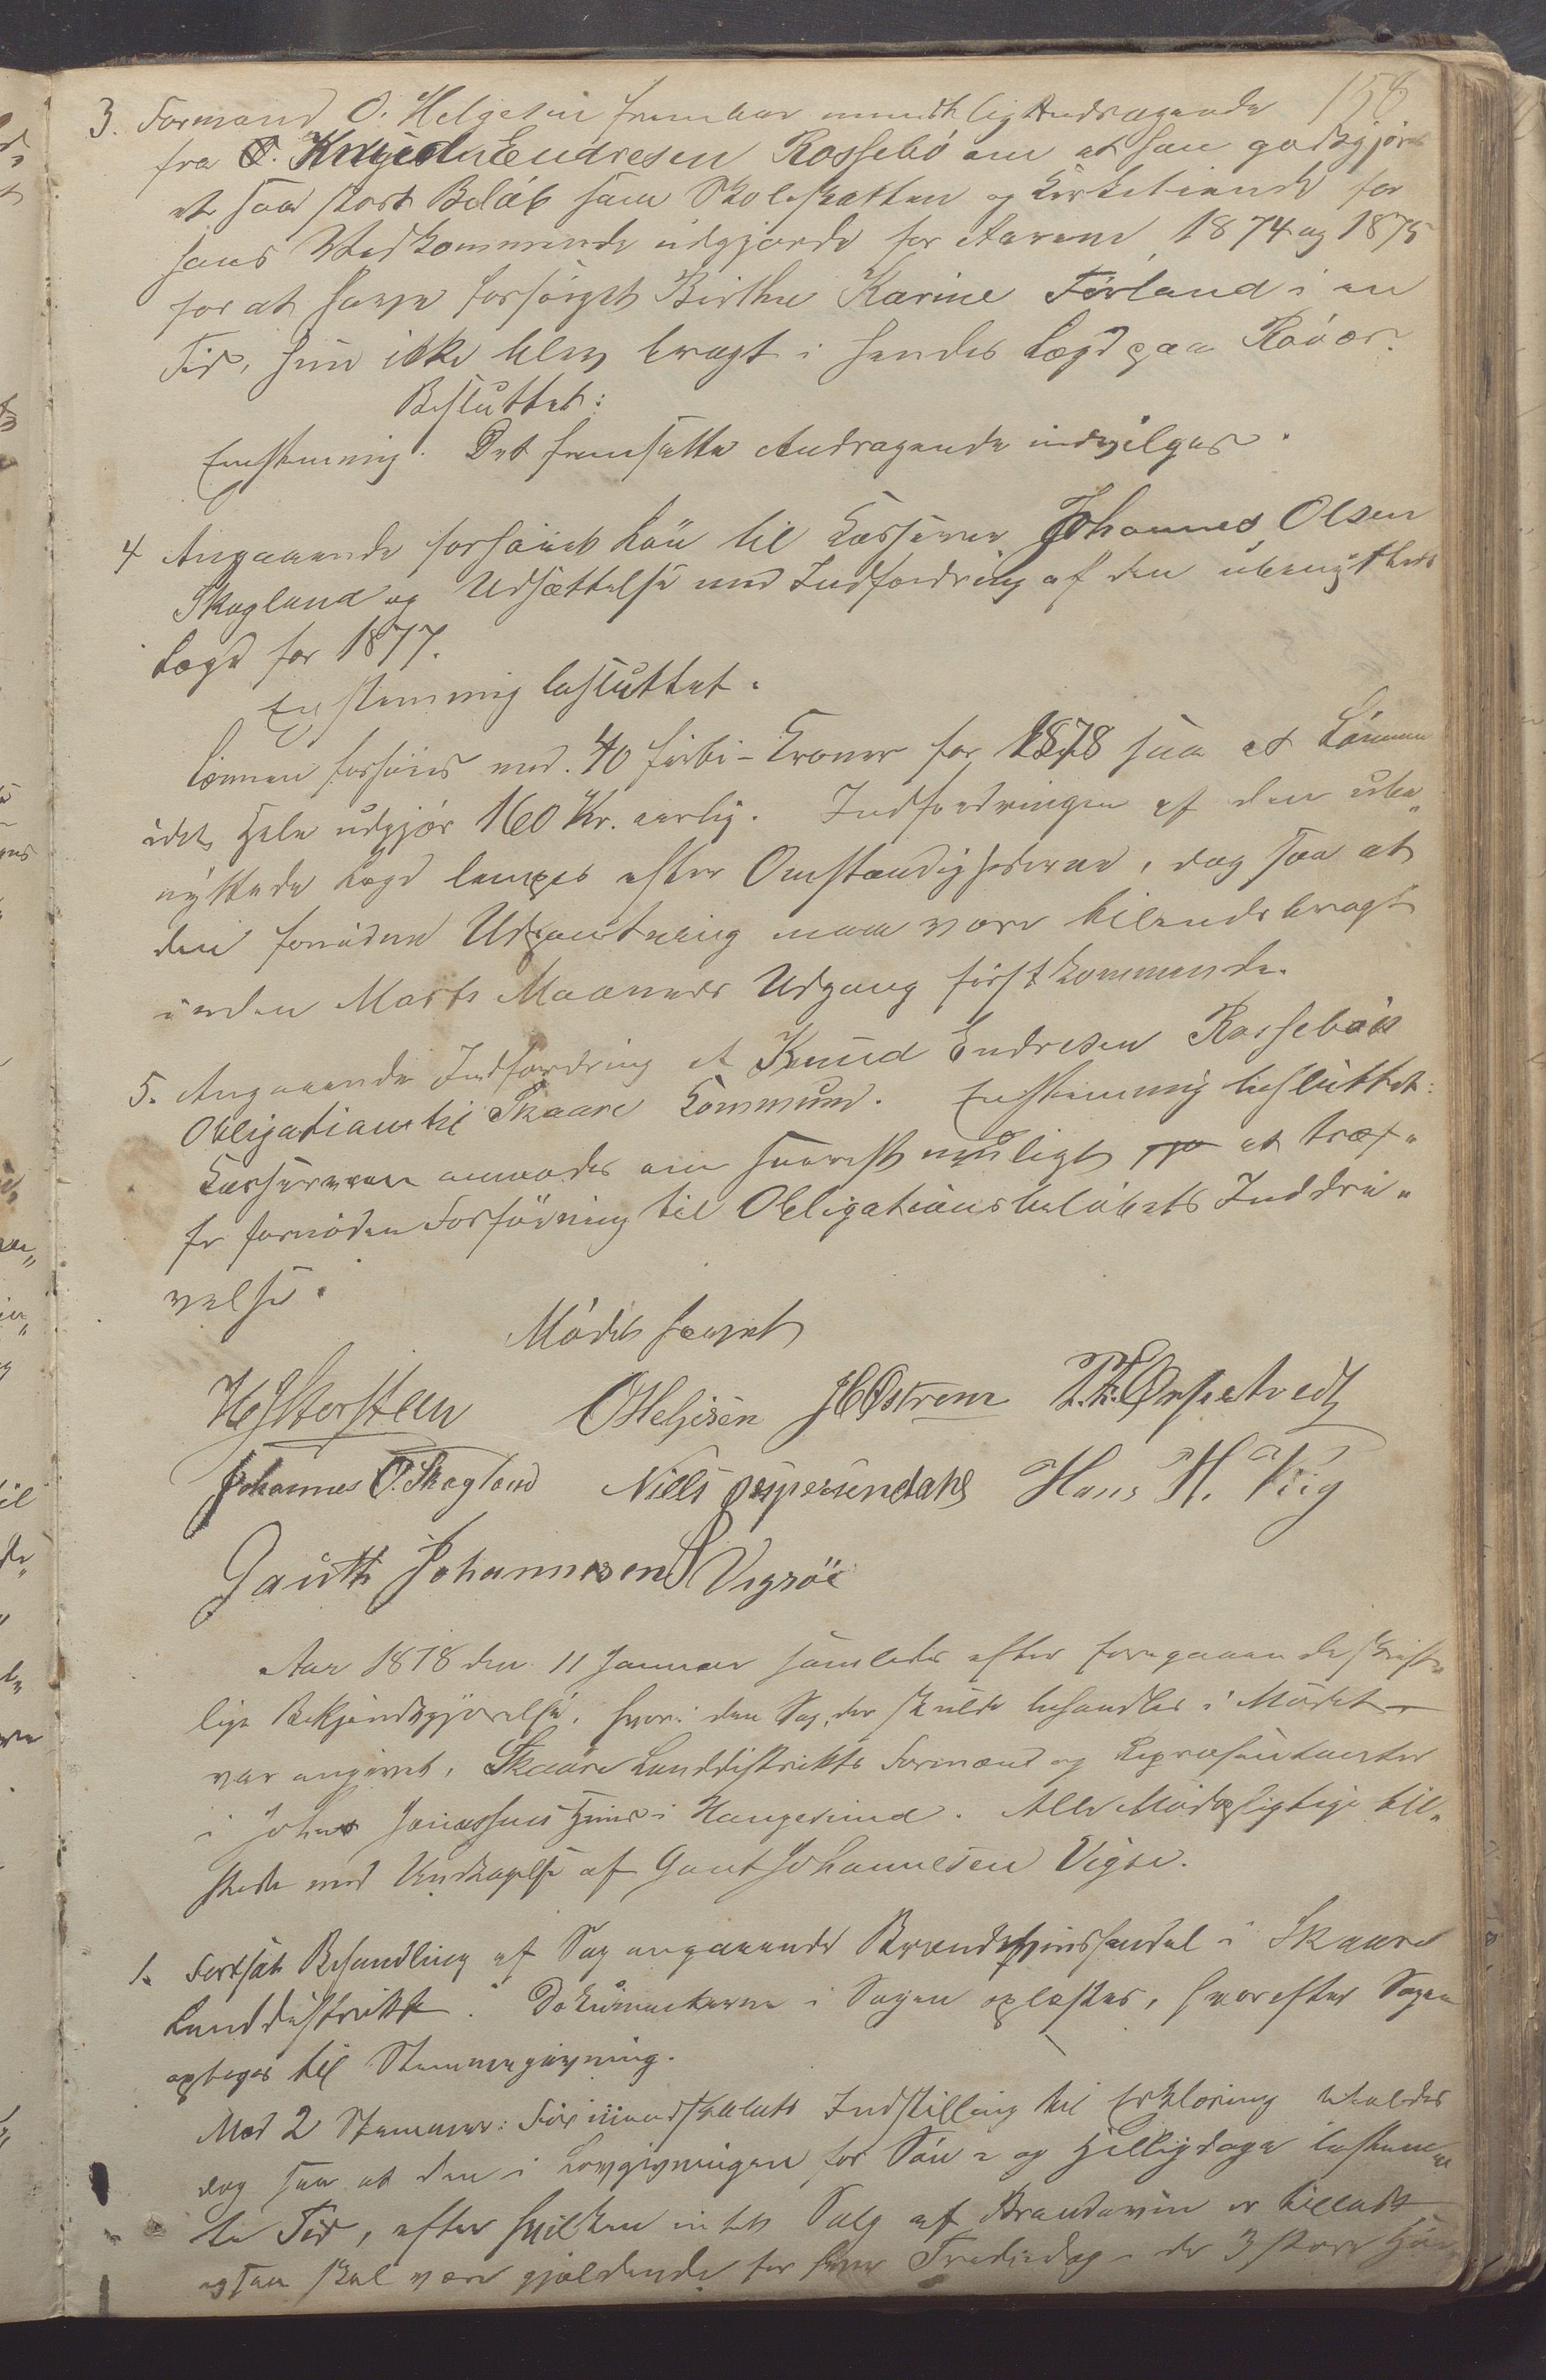 158
3. Formand O. Helgesen frembar mundtlig Andragende
fra Knud Endresen Rossebö om at han godtgjöres
et saa stort Belöb som Skoleskatten og Kirketiende for
hans Vedkommende udgjorde for Aarene 1874 og 1875
for at have forsörget Birthe Karine Förland i en
Tid, hun ikke blev bragt i hendes Lægd paa Röver.
Besluttet:
Enstemmig. Det fremsatte Andragende indvilges.
4 Angaaende forhöiet Lön til Kasserer Johannes Olsen
Skogland og Udsættelse med Indfordring af den ubenyttede
Lægd for 1877.
Enstemmig besluttet.
Lönnen forhöies med 40 förti - Kroner for 1878 saa at Lönnen
idet Hele udgjör 160 Kr. aarlig. Indfordringen af den ube„
nyttede Lægd lempes efter Omstændighederne, dog saa at
den fornödne Udpantning maa være tilendebragt
inden Marts Maaneds Udgang förstkommende.
5. Angaaende Indfordring af Knud Endresen Rossebös
Obligation til Skaare Kommune. Enstemmig besluttet:
Kassereren anmodes om snarest muligt at træf„
fe fornöden Forföining til Obligationsbelöbets Inddri„
velse.
Mödet hævet
H Storsteen O Helgesen J H Östrem T. T. Omsetvedt
Johannes O. Skogland Niels Jespersendahl Hans H. Viig
Gauth Johannesen Vigsöe
Aar 1878 den 11 Januar samledes efter foregaaende skrift„
lige Bekjendtgjörelse, hvori den Sag, der skulde behandles i Mödet
var angivet, Skaare Landdistrikts Formænd og Repræsentanter
i Johs Jonassens Huus i Haugesund. Alle Mödepligtige til„
stede med Undtagelse af Gaut Johannesen Vigse.
1. Fortsat Behandling af Sag angaaende Brændeviinshandel i Skaare
Landdistrikt. Dokumenterne i Sagen oplæstes, hvorefter Sagen
optoges til Stemmegivning.
Med 2 Stemmer: Formandskabets Indstilling til Erklæring
dog saa at den i Lovgivningen for Sön- og Helligdage bestem„
te Tid, efter hvilken intet Salg af Brændeviin er tilladt
ogsaa skal være gjældende for hver Trediedag - de 3 store Höi